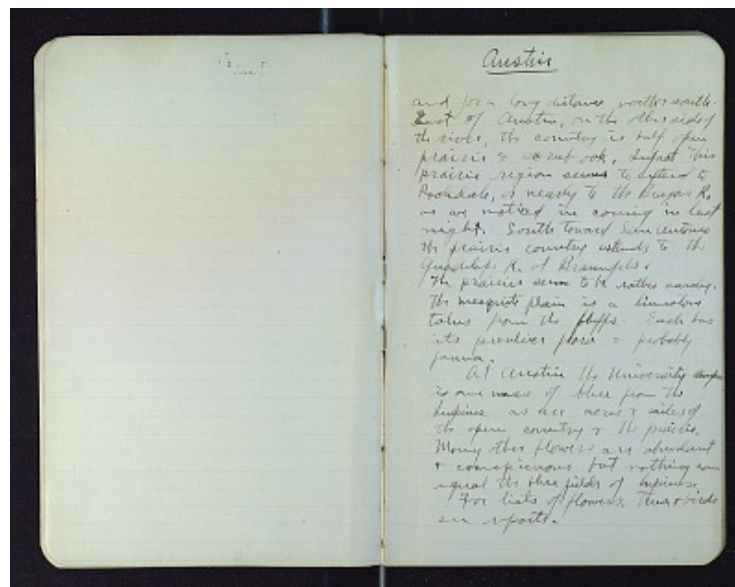 Austin
and for a long distance north & south
East of Austin, on the other side of
the river, the country is half open
prairie & scrub oak. In fact this
prairie region seems to extend to
Rockdale, or nearly to the Brazos R.
as we noticed in coming in last
night. South toward San Antonio
the prairie country extends to the
Guadalupe R. at Braunfels.
The prairies seem to be rather sandy.
The mesquite plain is a limestone
talus from the bluffs. Each has
its peculiar flora & probably
fauna.
At Austin the University campus
is one mass of blue from the
lupines as are acres & miles of
the open country & the prairie.
Many other flowers are abundant
& conspicuous but nothing can
equal the blue fields of lupines.
For lists of flowers, trees & birds
see reports.